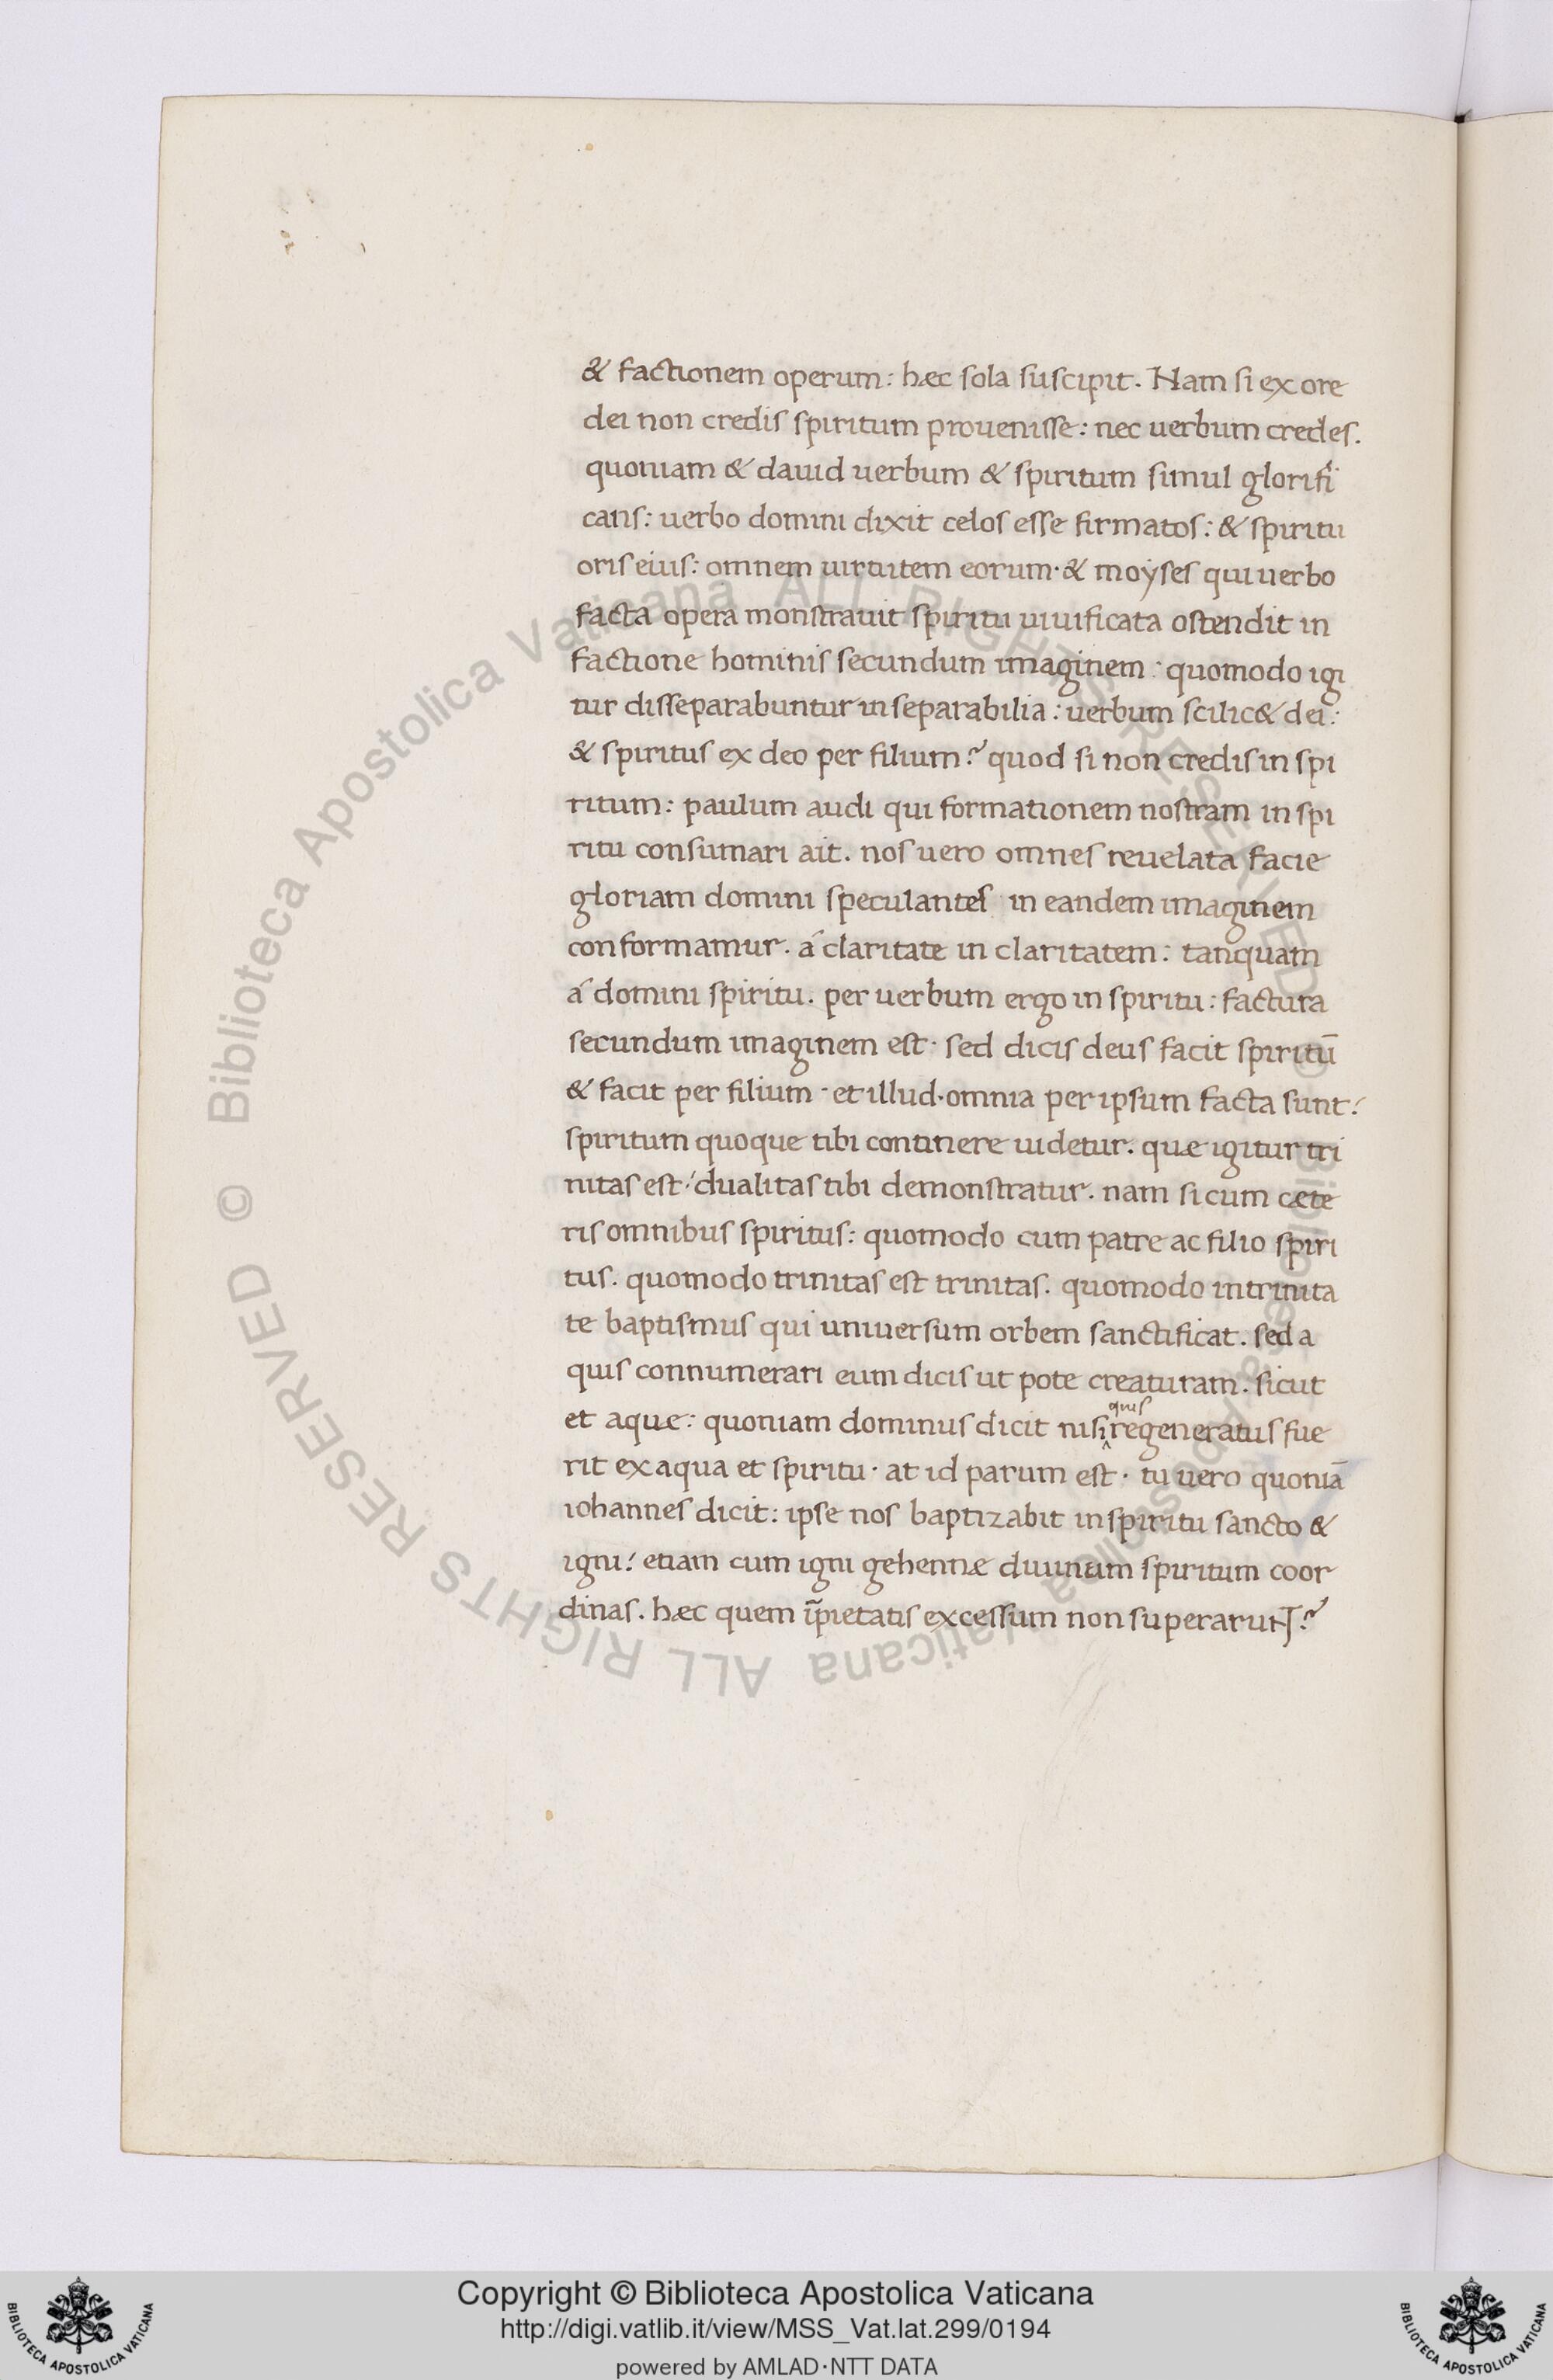 & factionem operum: hæc sola suscipit. Nam si ex ore
dei non credis spiritum prouenisse: nec uerbum credes.
quoniam & dauid uerbum & spiritum simul glorifi
cans: uerbo domini dixit celos esse firmatos: & spiritu
oris eius: omnem uirtutem eorum· & moyses qui uerbo
facta opera monstrauit spiritu uiuificata ostendit in
factione hominis secundum imaginem: quomodo igi
tur disseparabuntur inseparabilia: uerbum scilic& dei:
& spiritus ex deo per filium? quod si non credis in spi
ritum: paulum audi qui formationem nostram in spi
ritu consumari ait. nos uero omnes reuelata facie
gloriam domini speculantes in eandem imaginem
conformamur. á claritate in claritatem: tanquam
á domini spiritu. per uerbum ergo in spiritu: factura
secundum imaginem est· sed dicis deus facit spiritū
& facit per filium· et illud· omnia per ipsum facta sunt:
spiritum quoque tibi continere uidetur. quæ igitur tri
nitas est: dualitas tibi demonstratur. nam si cum cæte
ris omnibus spiritus: quomodo cum patre ac filio spiri
tus. quomodo trinitas est trinitas. quomodo in trinita
te baptismus qui uniuersum orbem sanctificat. sed a
quis connumerari eum dicis ut pote creaturam. sicut
et aquæ: quoniam dominus dicit nisi quis regeneratus fue
rit ex aqua et spiritu· at id parum est· tu uero quoniā
iohannes dicit: ipse nos baptizabit in spiritu sancto &
igni: etiam cum igni gehennæ diuinum spiritum coor
dinas. hæc quem īpietatis excessum non superarunt?
Biblioteca Apostolica Vaticana ALL RIGHTS RESERVED ©
Biblioteca Apostolica Vaticana ALL RIGHTS RESERVED ©
Copyright © Biblioteca Apostolica Vaticana
http://digi.vatlib.it/view/MSS_Vat.lat.299/0194
powered by AMLAD·NTT DATA
BIBLIOTECA APOSTOLICA VATICANA
BIBLIOTECA APOSTOLICA VATICANA